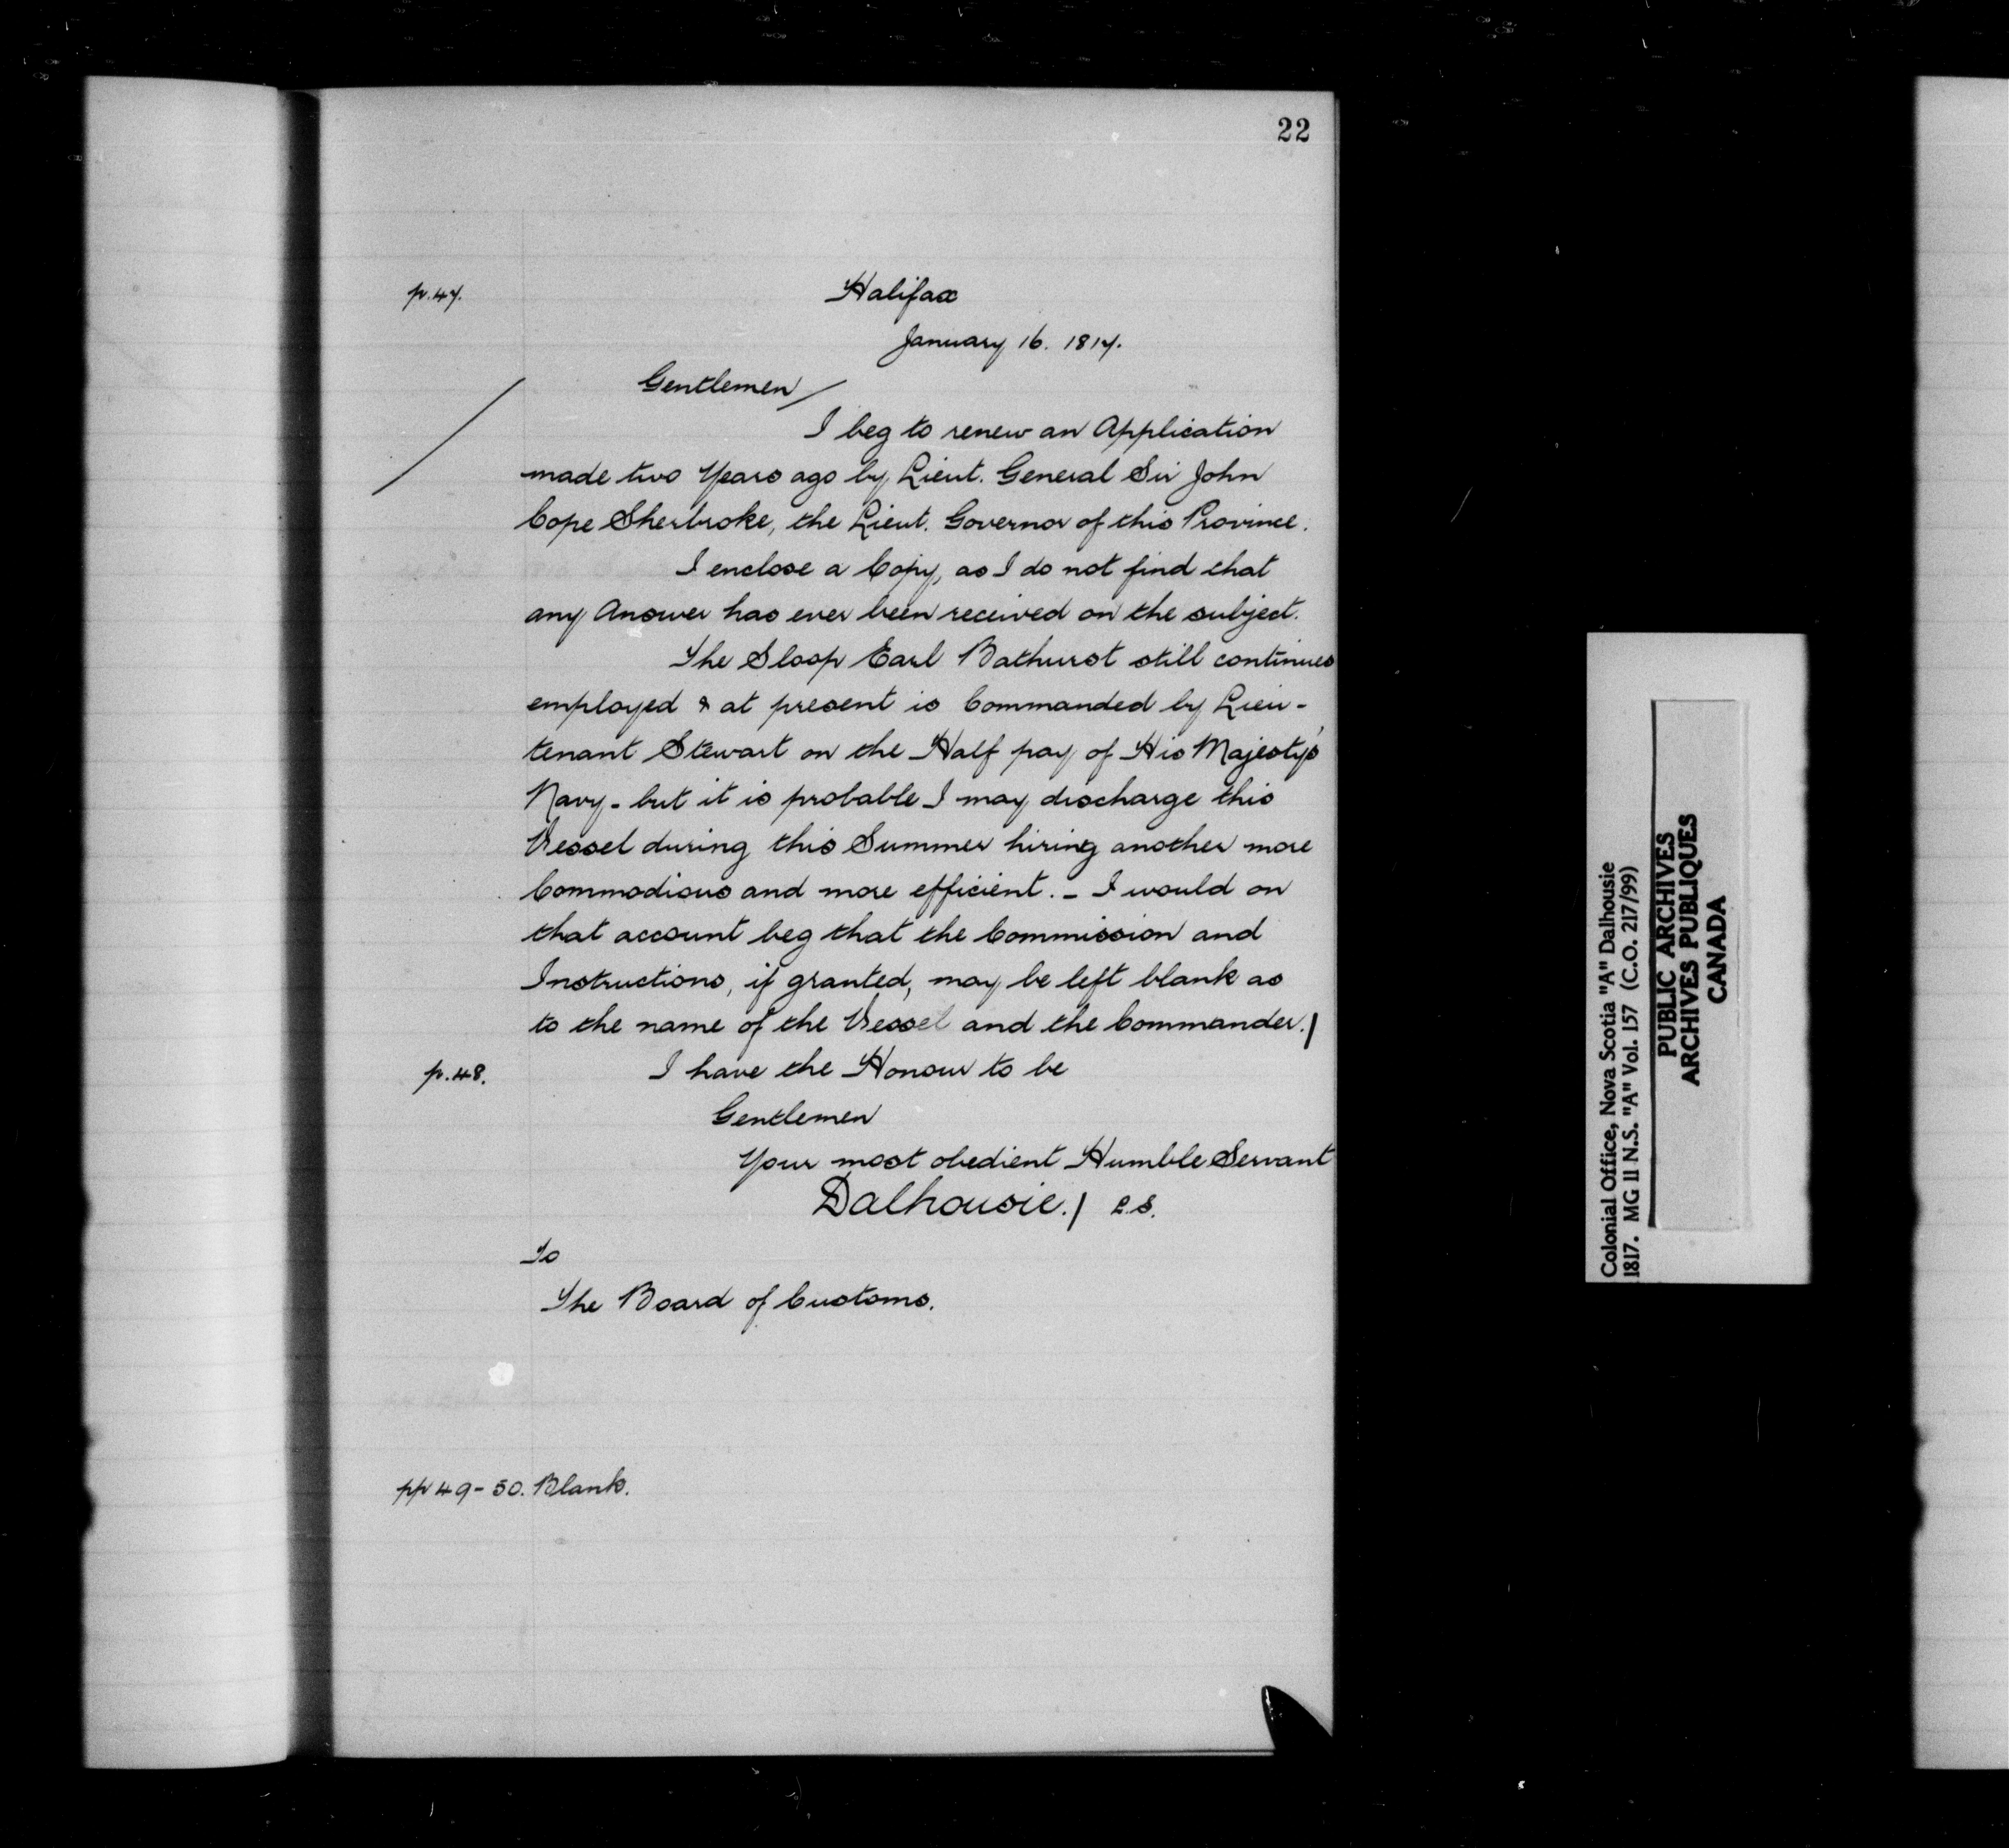 22
p.47.
Halifax
January 16. 1817.
Gentlemen/
I beg to renew an Application
made two Years ago by Lieut. General Sir John
Cope Sherbroke, the Lieut. Governor of this Province.
I enclose a Copy, as I do not find that
any Answer has ever been received on the subject.
The Sloop Earl Bathurst still continues
employed & at present is Commanded by Lieu-
tenant Stewart on the Half pay of His Majesty's
Navy - but it is probable I may discharge this
Vessel during this Summer hiring another more
Commodious and more efficient. - I would on
that account beg that the Commission and
Instructions, if granted, may be left blank as
to the name of the Vessel and the Commander./
p.48.
I have the Honour to be
Gentlemen
Your most obedient Humble Servant
Dalhousie./ L.S.
To
The Board of Customs.
pp 49-50. Blank.
Colonial Office, Nova Scotia "A" Dalhousie
1817. MG 11 N.S. "A" Vol. 157 (C.O. 217/99)
PUBLIC ARCHIVES
ARCHIVES PUBLIQUES
CANADA